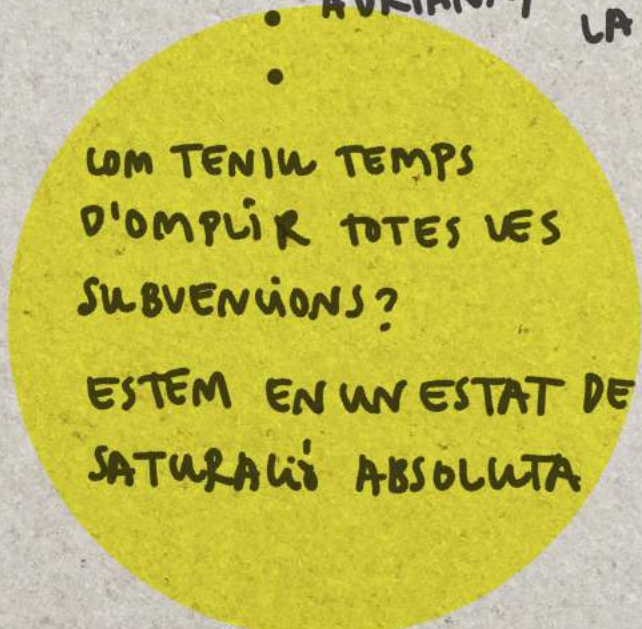 LA
COM TENIU TEMPS
D'OMPLIR TOTES LES
SUBVENCIONS?
ESTEM EN UN ESTAT DE
SATURACIÓ ABSOLUTA